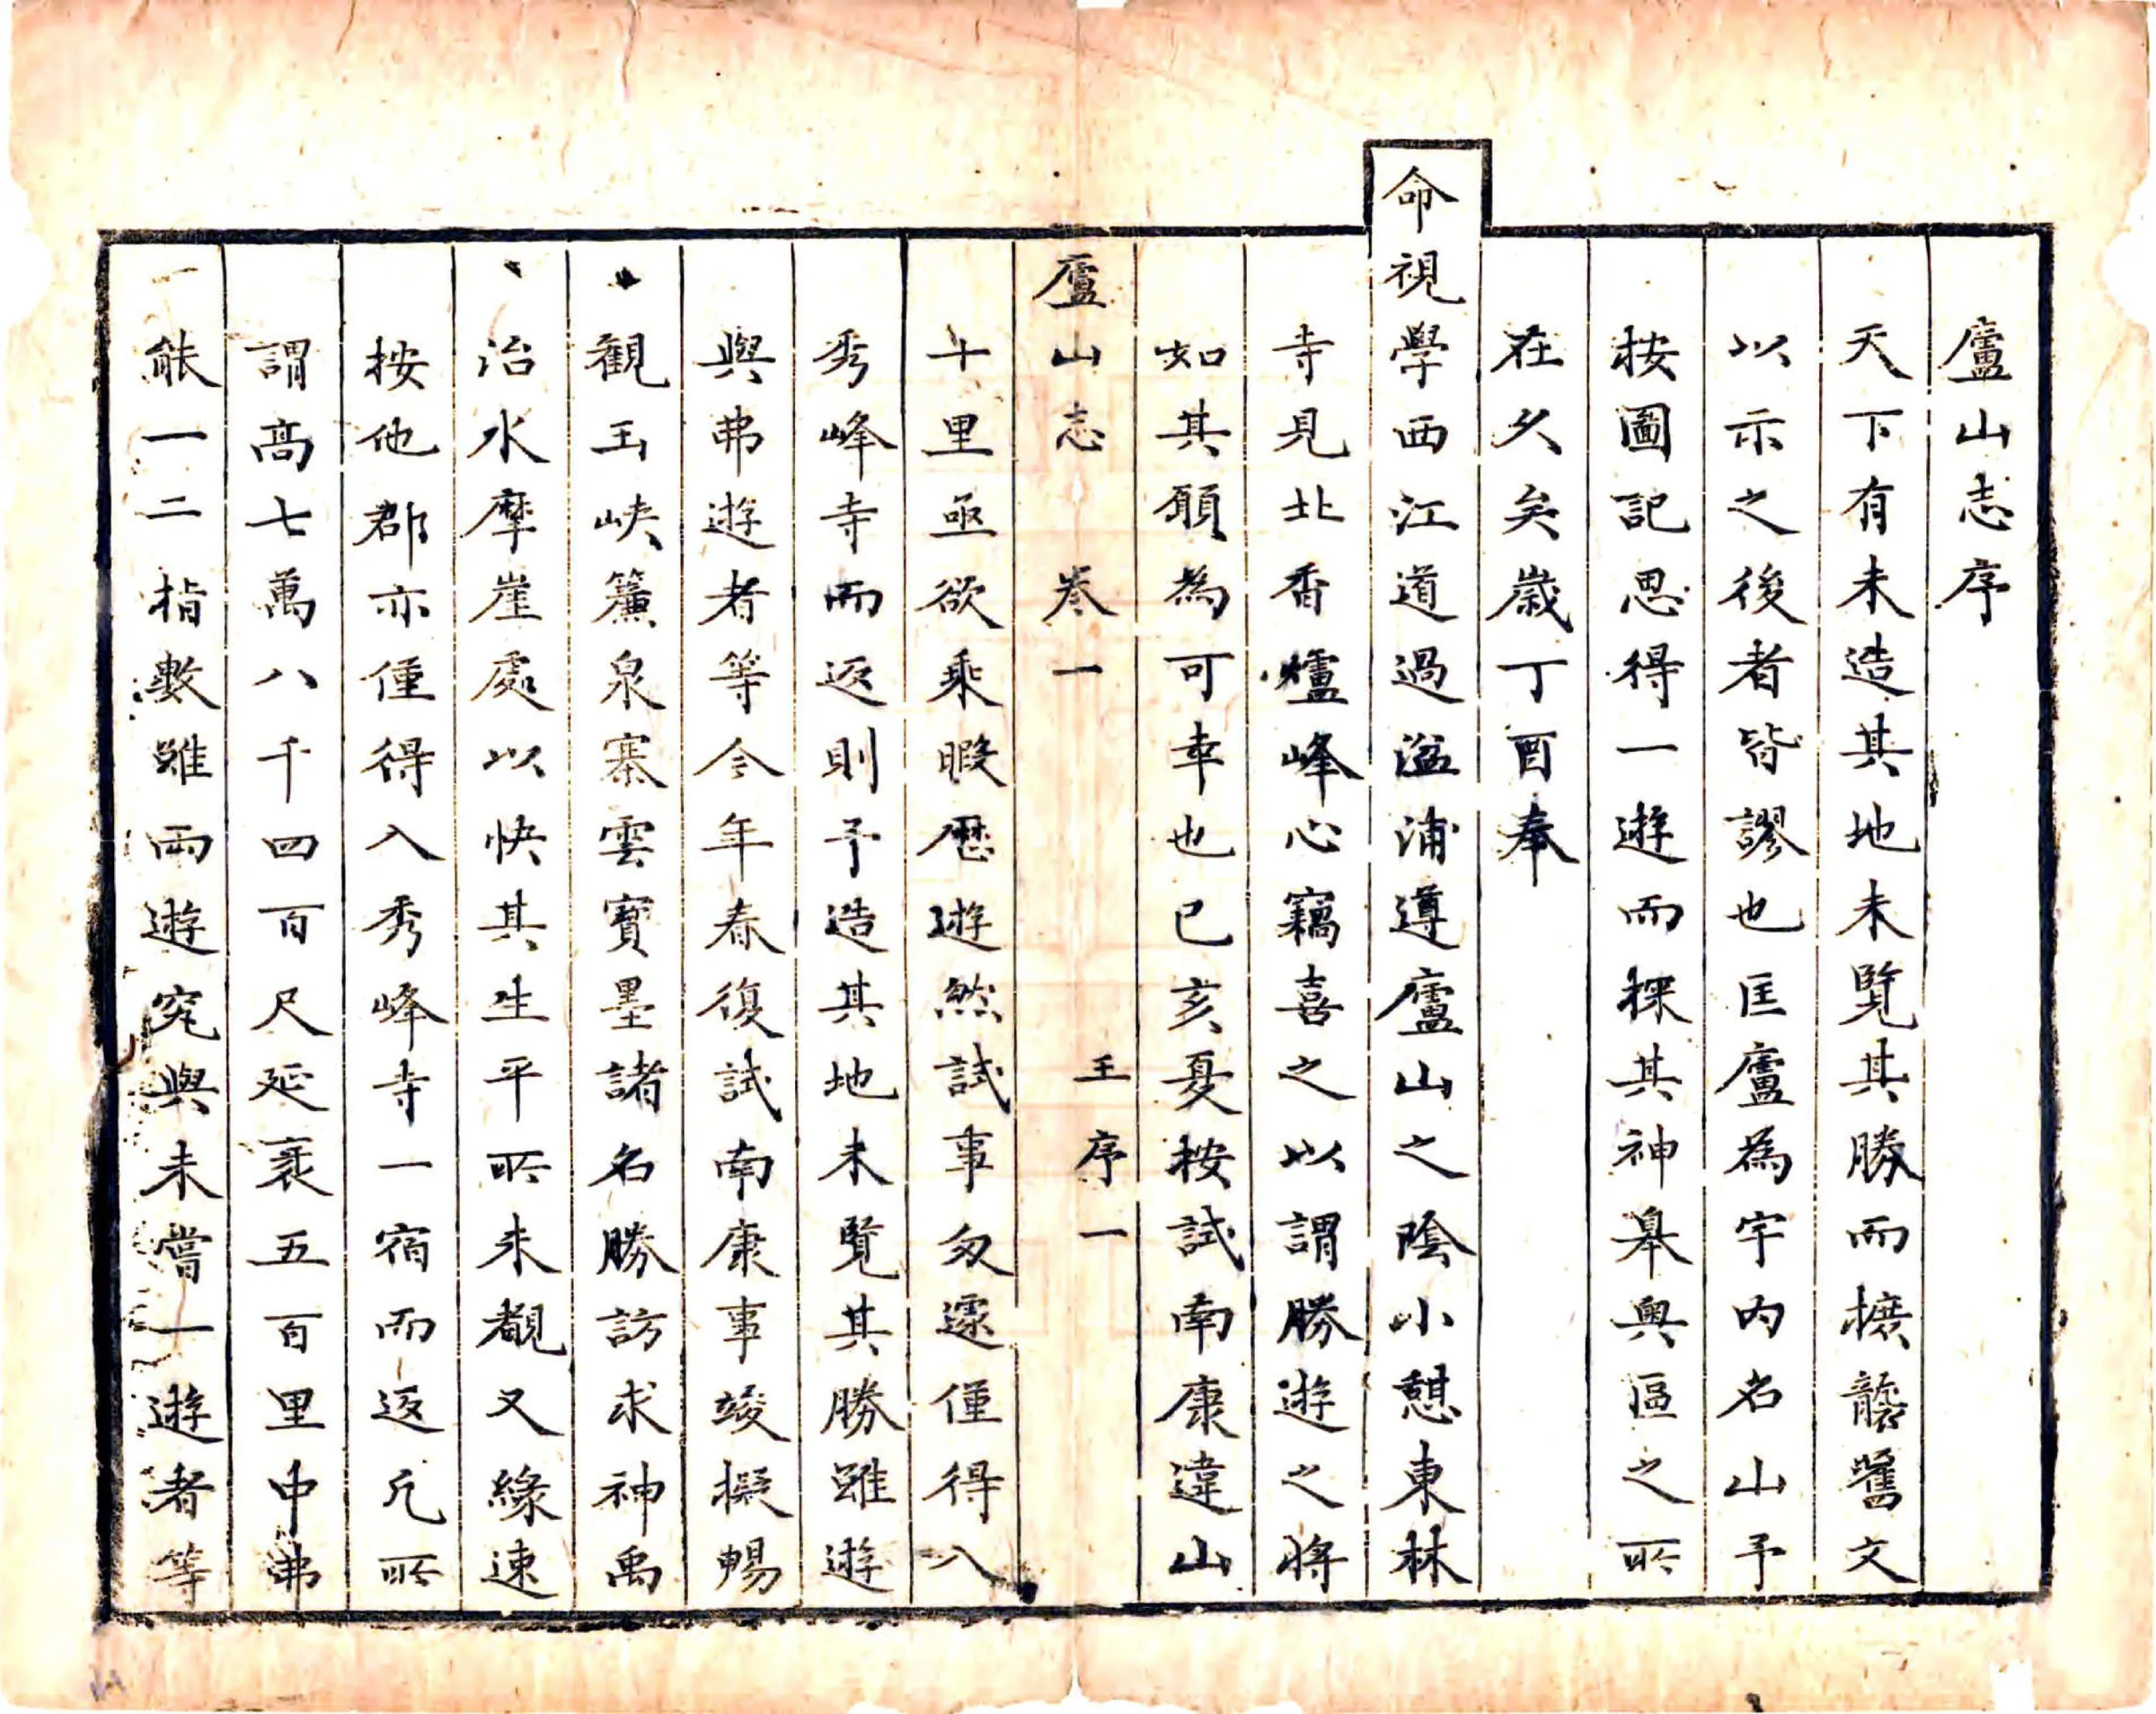 廬山志序
天下有未造其地未覽其勝而摭襲舊文
以示之後者皆謬也匡廬為宇内名山予
按圖記思得一遊而探其神皋奥區之所
在久矣歲丁酉奉
命視學西江道過湓浦遵廬山之陰小憩東林
寺見北香爐峰心竊喜之以謂勝遊之將
如其願為可幸也已亥夏按試南康違山
廬山志 卷一 王序一
十里亟欲乘暇歷遊然試事匆遽僅得入
秀峰寺而返則予造其地未覽其勝雖遊
與弗遊者等今年春復試南康事竣擬暢
觀玉峽簾泉寨雲寳墨諸名勝訪求神禹
治水摩崖處以快其生平所未覩又緣速
按他郡亦僅得入秀峰寺一宿而返凡所
謂髙七萬八千四百尺延袤五百里中弗
能一二指數雖兩遊究與未嘗一遊者等